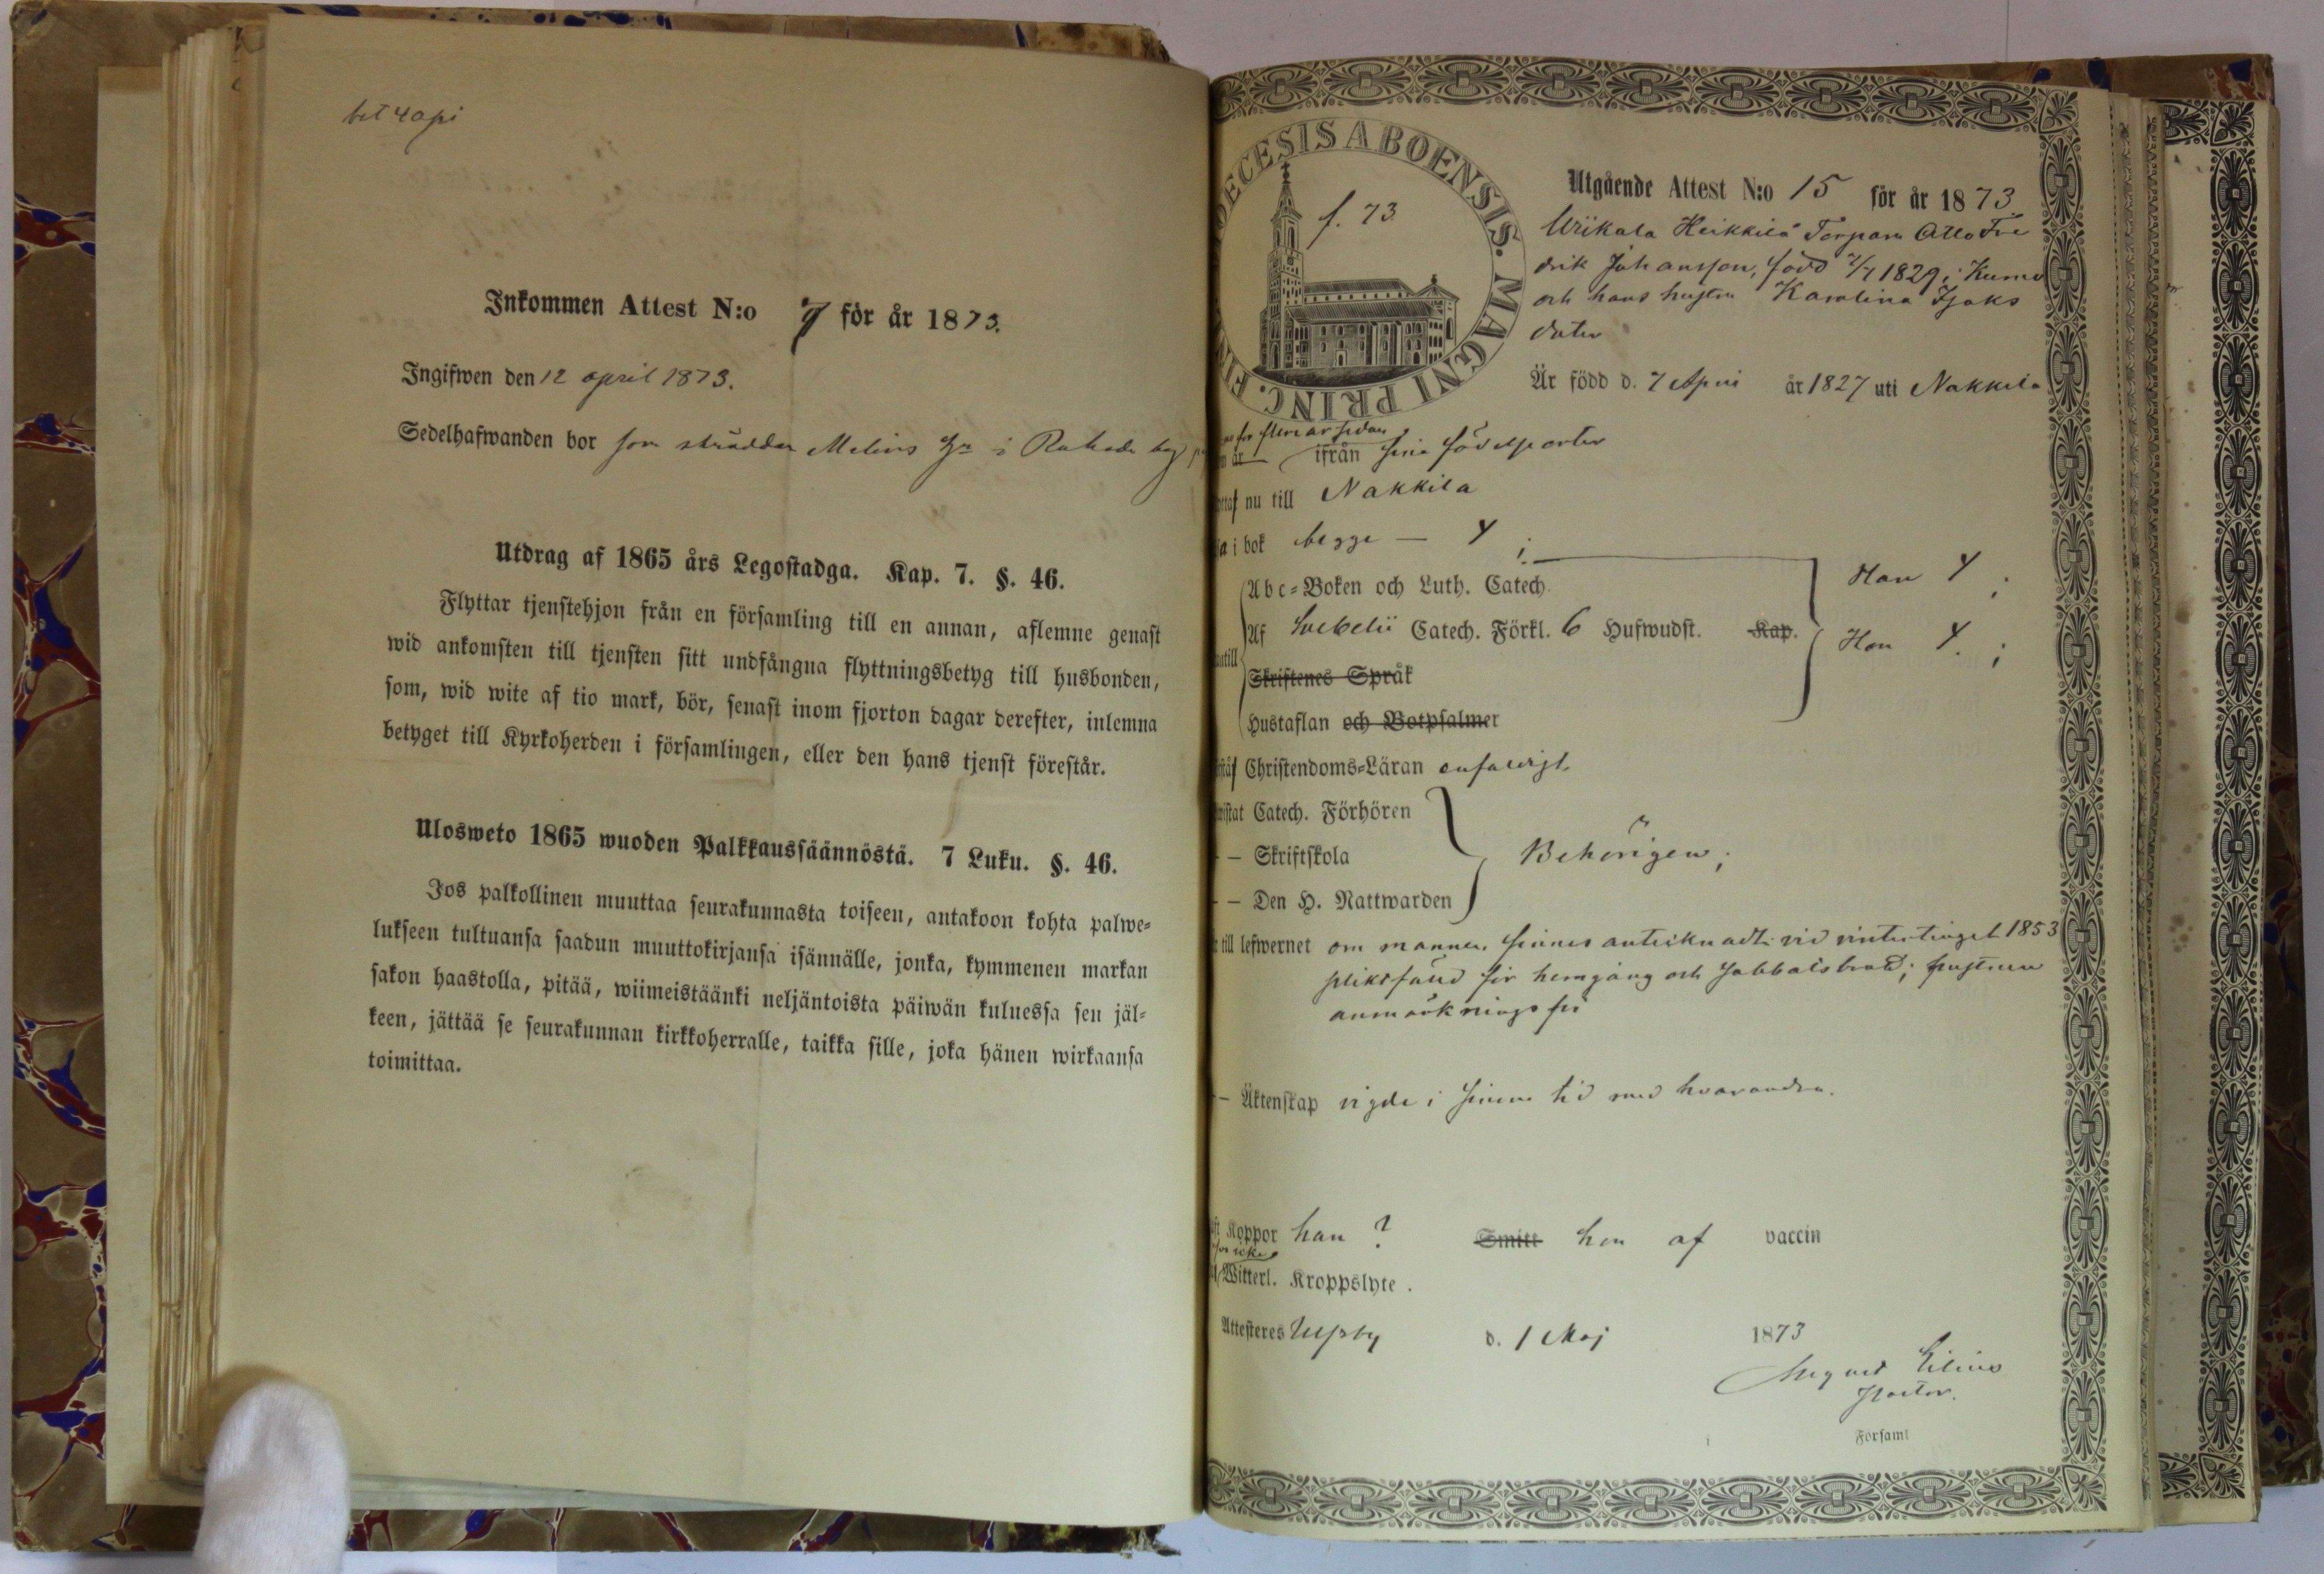 bet 40 pi
Inkommen Attest N:o 7 för år 1873.
Ingifwen den 12 april 1873.
Sedelhafwanden bor som skräddar Melins i
Utdrag af 1865 års Legostadga. Kap. 7. §. 46.
Flyttar tjenstehjon från en församling till en annan, aflemne genast
wid ankomsten till tjensten sitt undfångna flyttningsbetyg till husbonden,
som, wid wite af tio mark, bör, senast inom fjorton dagar derefter, inlemna
betyget till Kyrkoherden i församlingen, eller den hans tjenst förestår.
Ulosweto 1865 wuoden Palkkaussäännöstä. 7 Luku. §. 46.
Jos palkollinen muuttaa seurakunnasta toiseen, antakoon kohta palwe=
lukseen tultuansa saadun muuttokirjansa isännälle, jonka, kymmenen markan
sakon haastolla, pitää, wiimeistäänki neljäntoista päiwän kuluessa sen jäl=
keen, jättää se seurakunnan kirkkoherralle, taikka sille, joka hänen wirkaansa
toimittaa.
ECESIS ABOENSIS. MAGNI PRINC. FIN
f. 73
Utgående Attest N:o 15 för år 1873
Heikkilä Torparn Otto Fre
drik Johansson, född 1829 i Kumo
och hans hustru Karolina Isaks
doter
Är född d. 7 April år 1827 uti Nakkila
för flere år sedan
år ifrån sine födelseorter
nu till Nakkila
i bok begge — Y ;
Abc=Boken och Luth. Catech.
Han Y ;
Af Svebelii Catech. Förkl. 6 Hufwudst. Kap.
Hon Y. ;
Skriftenes Språk
Hustaflan och Botpsalmer
Christendoms=Läran enfaldigt.
Catech. Förhören
— Skriftskola
Behörigen;
— Den H. Nattwarden
till lefwernet om mannen finnes antecknadt: vid vintertinget 1853
pliktfäld för hemgång och sabbatsbrott; hustrun
anmärkningsfri
— Äktenskap vigde i sinom tid med hvarandra.
Koppor han ? Smitt hon af vaccin
icke
Witterl. Kroppslyte.
Attesteres Ulfsby d. 1 Maj 1873
August
Pastor.
i Församl